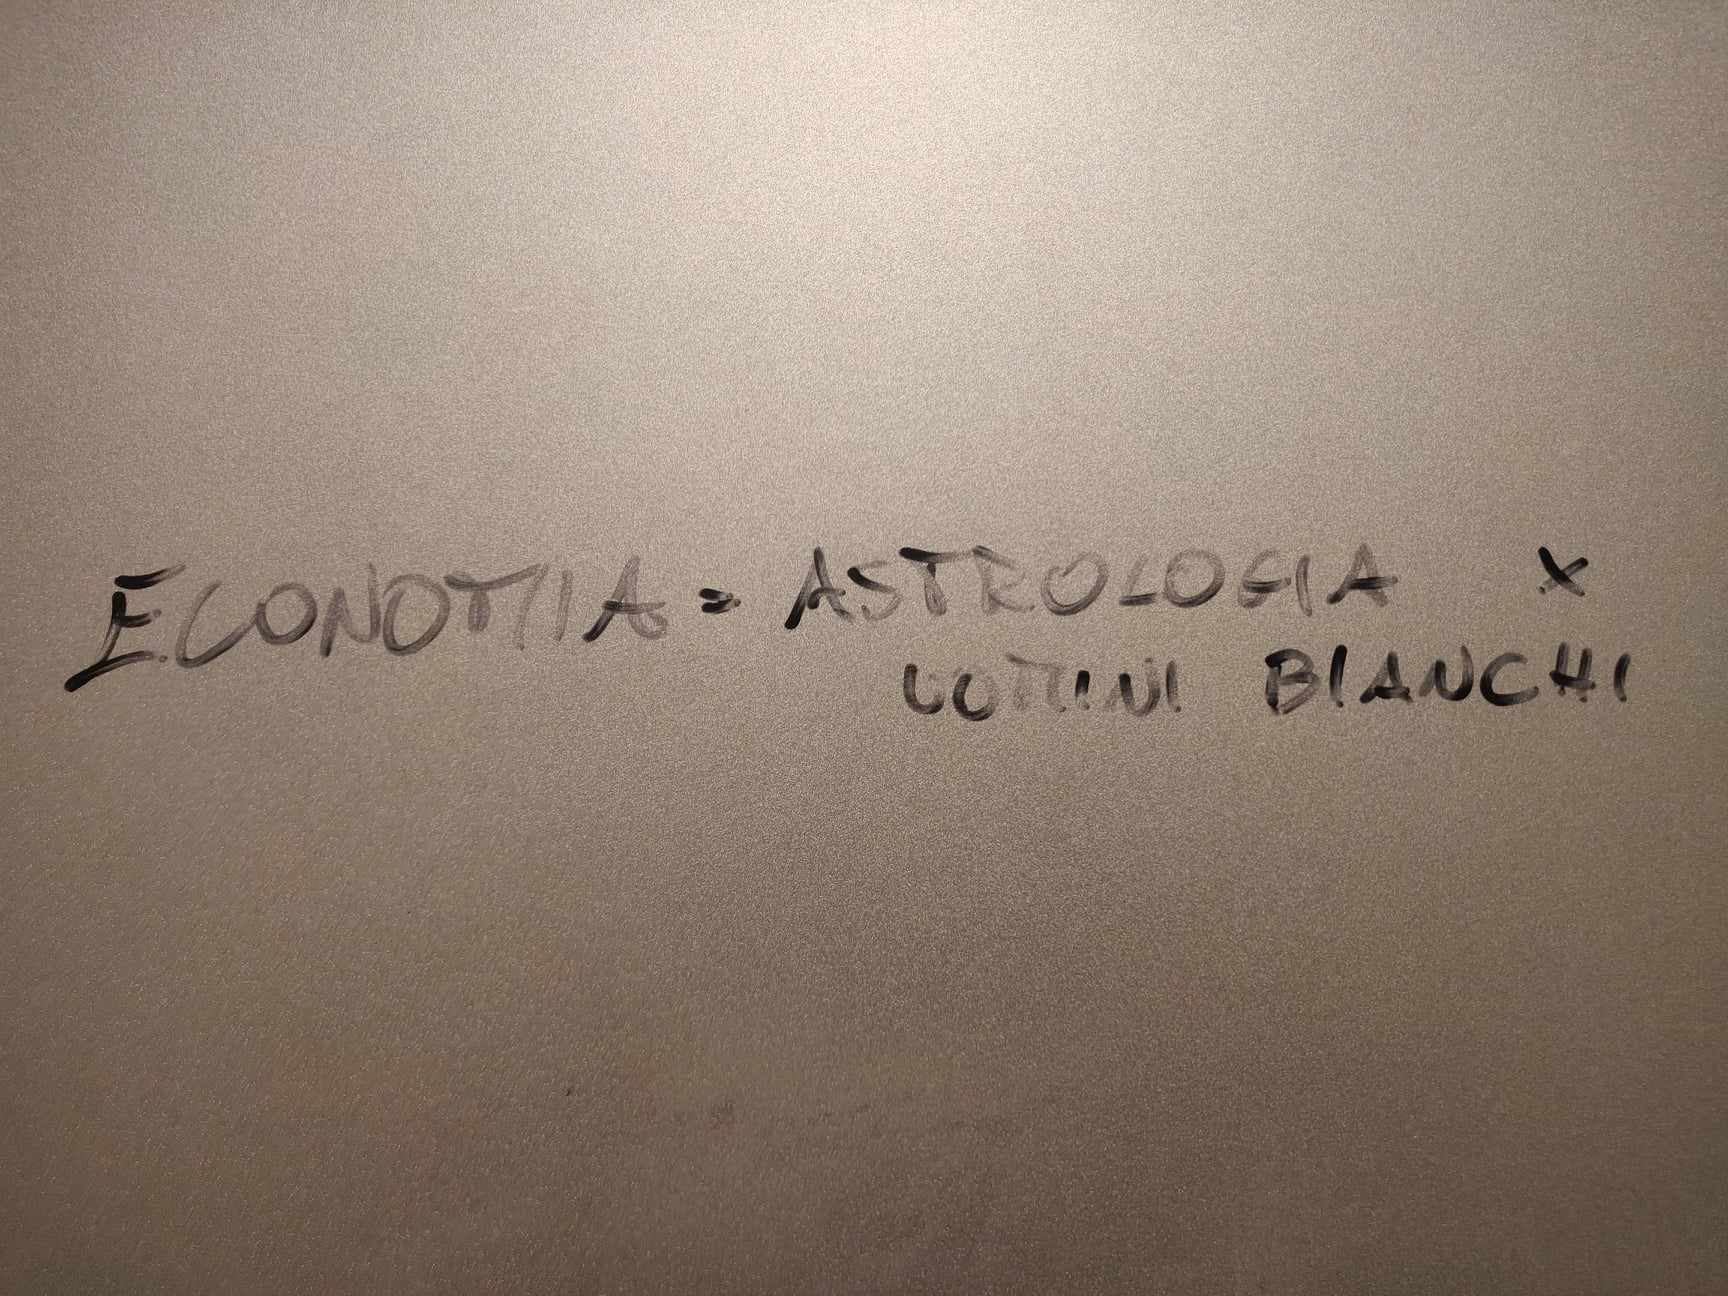 ECONOMIA = ASTROLOGIA X
UOMINI BIANCHI